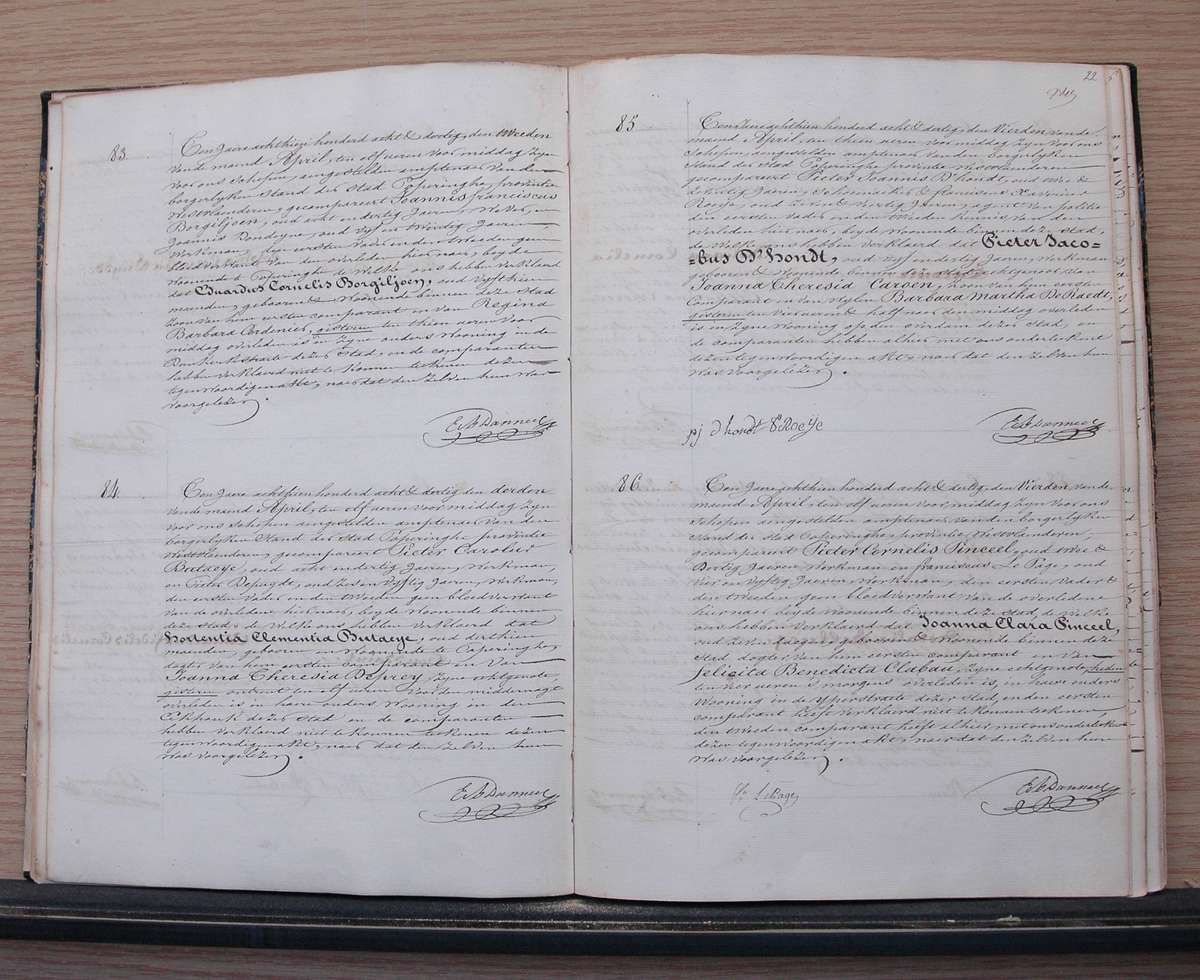 83.
Ten Jaere achthien honderd acht & dertig, den tweeden
van de maend April, ten elf ueren voor middag zyn
voor ons schepen aengestelden amptenaer van den
borgerlyken Stand der Stad Poperinghe, provintie
Westvlanderen, gecompareert Joannis franciscus
Borgiljoen, oud acht en dertig Jaeren, Wever, en
Joannis Dondeyne, oud vyf en Veertig Jaeren
Werkman, den eersten vader en den tweeden geen
bloedverwant van den overleden hier naer, beyde
Woonende te Poperinghe de Welke ons hebben verklaerd
dat Eduardus Cornelis Borgiljoen, oud vyfthien
maenden, geboren & Woonende binnen deze Stad
zoon van hem eersten comparant en van Regina
Barbara Cordenier, gisteren ten thien ueren voor
middag overleden is in zyne ouders Wooning in de
deze Stad, en de comparanten
hebben verklaerd niet te konnen teekenen dezen
tegenwoordigen akt, naer dat den zelven hun was
voorgelezen.
84.
Ten Jaere achthien honderd acht & dertig den derden
van de maend April, ten elf ueren voor middag zyn
voor ons schepen aengestelden amptenaer van den
borgerlyken Stand der Stad Poperinghe provintie
Westvlanderen, gecompareert Pieter Carolus
Butaeye, oud acht en dertig Jaeren, Werkman,
en Pieter Depuydt, oud zeven & vyftig Jaeren, Werkman,
den eersten vader en den tweeden geen bloedverwant
van de overledene hier naer, beyde Woonende binnen
deze Stad, de Welke ons hebben verklaerd dat
Hortentia Clementia Butaeye, oud derthien
maenden, geboren en Woonende te Poperinghe,
dogter van hem eersten comparant en van
Joanna Theresia Deprey, zyne echtgenote,
gisteren omtrent ten elf ueren voor den middernagt
overleden is in haere ouders Wooning in den
Eekhoek deze Stad en de comparanten
hebben verklaerd niet te konnen teekenen dezen
tegenwoordigen akt, naer dat den zelven hun
was voorgelezen.
22
85
Ten Jaere achthien honderd acht & dertig, den Vierden van de
maend April, ten thien ueren voor middag zyn voor ons
schepen aengestelden amptenaer van den borgerlyken
Stand der Stad Poperinghe provintie Westvlanderen
gecompareert Pieter Joannis D'hondt, oud
Jaeren, Schoenmaker &
Roeye, oud zeven & veertig Jaeren, agent van politie
den eersten vader en den tweeden kennis van den
overleden hier naer, beyde Woonende binnen deze Stad,
de Welke ons hebben verklaerd dat Pieter Jaco-
-bus D'hondt, oud vyf en dertig Jaeren, Werkman
geboren & Woonende binnen deze Stad echtgenoot van
Joanna Theresia Caroen, zoon van hem eersten
comparant en van wylen Barbara Martha DeRaedt,
gisteren ten vier ueren & half naer den middag overleden
is in zyne Wooning op den overdam deze Stad, en
de comparanten hebben alhier met ons onderteekent
dezen tegenwoordigen akt naer dat den zelven hun
Was voorgelezen.
pj d'hondt Roeye
86
Ten Jaere achthien honderd acht & dertig den Vierden van de
maend April, ten elf ueren voor middag, zyn voor ons
schepen aengestelden amptenaer van den borgerlyken
Stand der Stad Poperinghe, provintie Westvlanderen,
gecompareert Pieter Cornelis Pinceel, oud &
Dertig Jaeren, Werkman en franciscus Le Page, oud
Vier en vyftig Jaeren, Werkman, den eersten vader &
den tweeden geen bloedverwant van de overledene
hier naer beyde Woonende binnen deze Stad, de Welke
ons hebben verklaerd dat Joanna Clara Pinceel,
oud daegen, geboren & Woonende binnen deze
Stad, dogter van hem eersten comparant en van
felicita Benedicta Clabau, zyne echtgenote, heden
ten vier ueren 's morgens overleden is, in haere ouders
Wooning in de yperstraete deze Stad, en den eersten
comparant heeft verklaerd niet te konnen teekenen,
den tweeden comparant heeft alhier met ons onderteekent
dezen tegenwoordigen akt naer dat den zelven hun
Was voorgelezen.
LePage